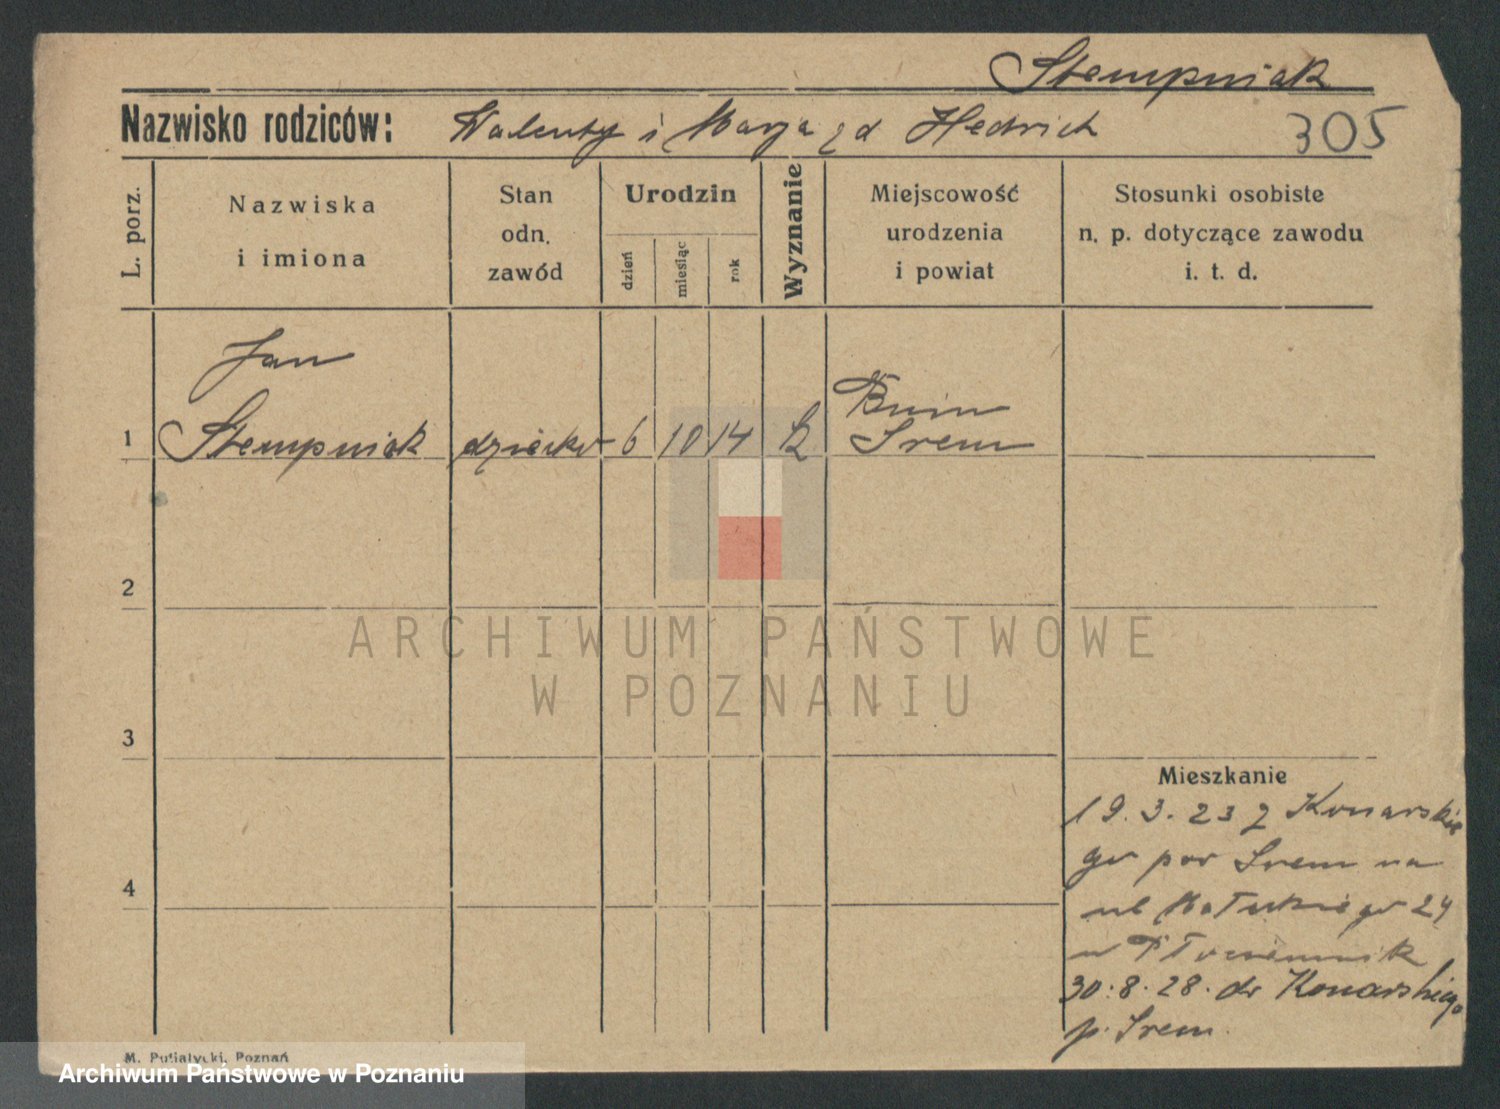 Stempniak
Nazwisko rodziców: Walenty i Marja z d Hedrich 305
L. porz.
Nazwiska
i imiona
Stan
odn.
zawód
Urodzin
dzień
miesiąc
rok
Wyznanie
Miejscowość
urodzenia
i powiat
Stosunki osobiste
n. p. dotyczące zawodu
i. t. d.
Jan
Bnin
1 Stempniak dziecko 6 10 14 k Srem
2
ARCHIWUM PAŃSTWOWE
W POZNANIU
3
Mieszkanie
19.3.23 z Konarskie
go pow Srem na
ul 24
4
u
30.8.28. do Konarskiego
p. Srem.
M. Putiatycki, Poznań
Archiwum Państwowe w Poznaniu